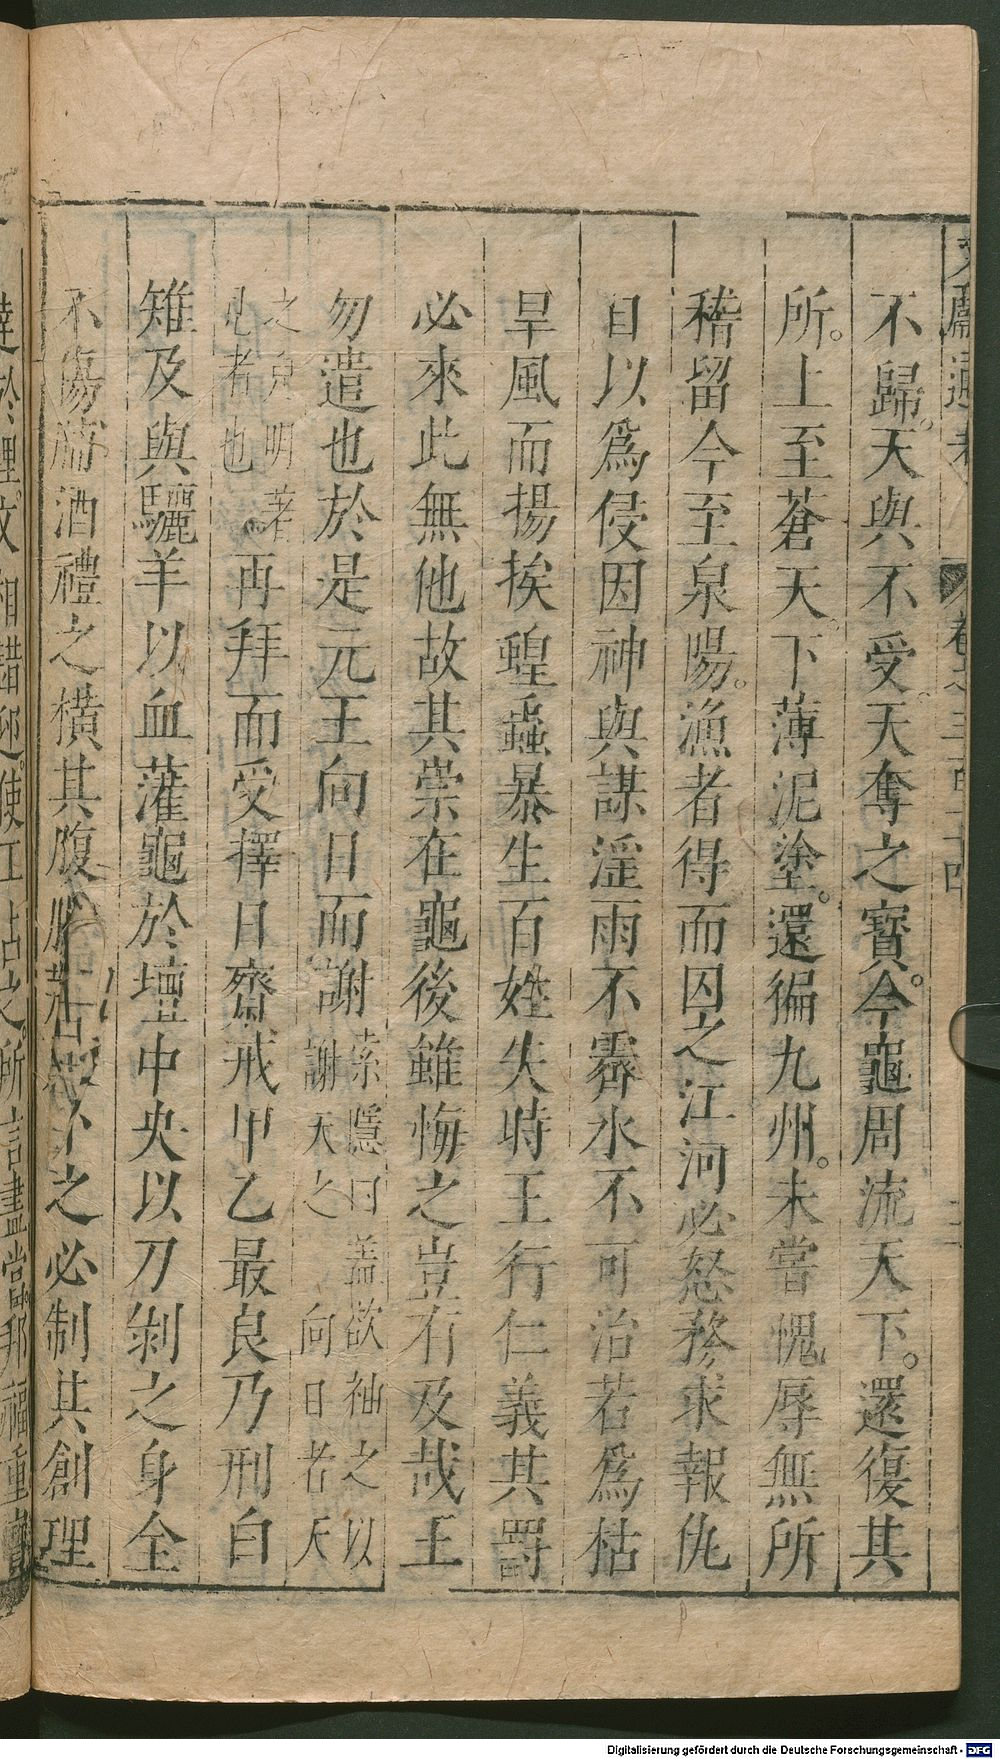 不歸天與不受天奪之寳今龜周流天下還復其
所上至蒼天下薄泥塗還徧九州未嘗愧辱無所
稽留今至泉陽漁者得而囚之江河必怒務求報仇
自以爲侵因神與謀淫雨不霽水不可治若爲枯
旱風而揚挨蝗蟲暴生百姓失時王行仁義其罰
必來此無他故其祟在龜後雖悔之豈有及哉王
勿遣也於是元王向日而謝索隱曰盖欲神之以謝天之向日者天
之光明著見者也再拜而受擇日齋戒甲乙最良乃刑白
雉及與驪羊以血灌龜於壇中央以刀剝之身全
不傷脯酒禮之橫其腹腸荆支卜之必制其創理
達於理文相錯迎使工占之所言盡當邦福重寳
文獻通考
卷之二百二十四
Digitalisierung gefördert durch die Deutsche Forschungsgemeinschaft - DFG